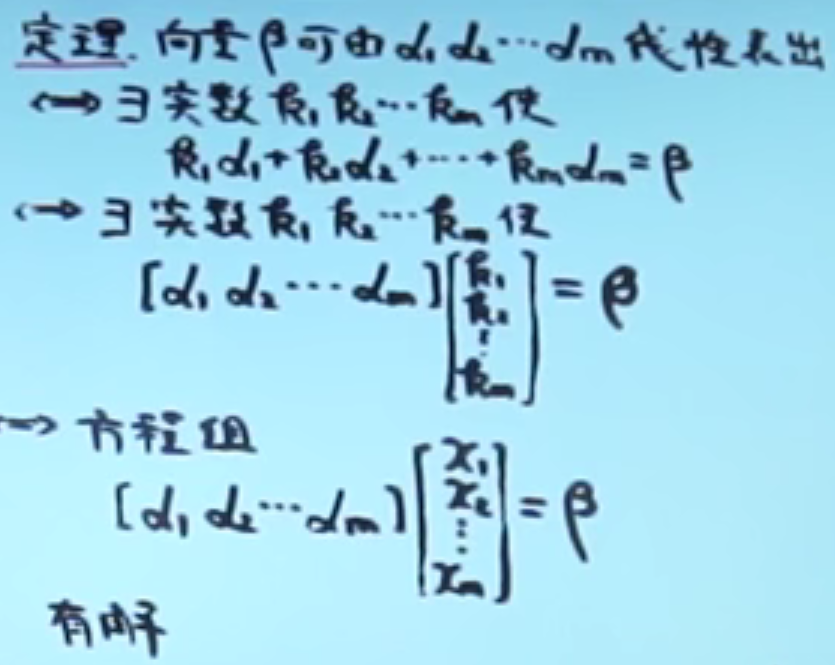 定理. 向量β可由α₁ α₂ ⋯ αₘ 线性表出
⟺ ∃ 实数 k₁ k₂ ⋯ kₘ 使
k₁α₁ + k₂α₂ + ⋯ + kₘαₘ = β
⟺ ∃ 实数 k₁ k₂ ⋯ kₘ 使
[α₁ α₂ ⋯ αₘ] [k₁ k₂ ⋮ kₘ] = β
⟺ 方程组
[α₁ α₂ ⋯ αₘ] [x₁ x₂ ⋮ xₘ] = β
有解